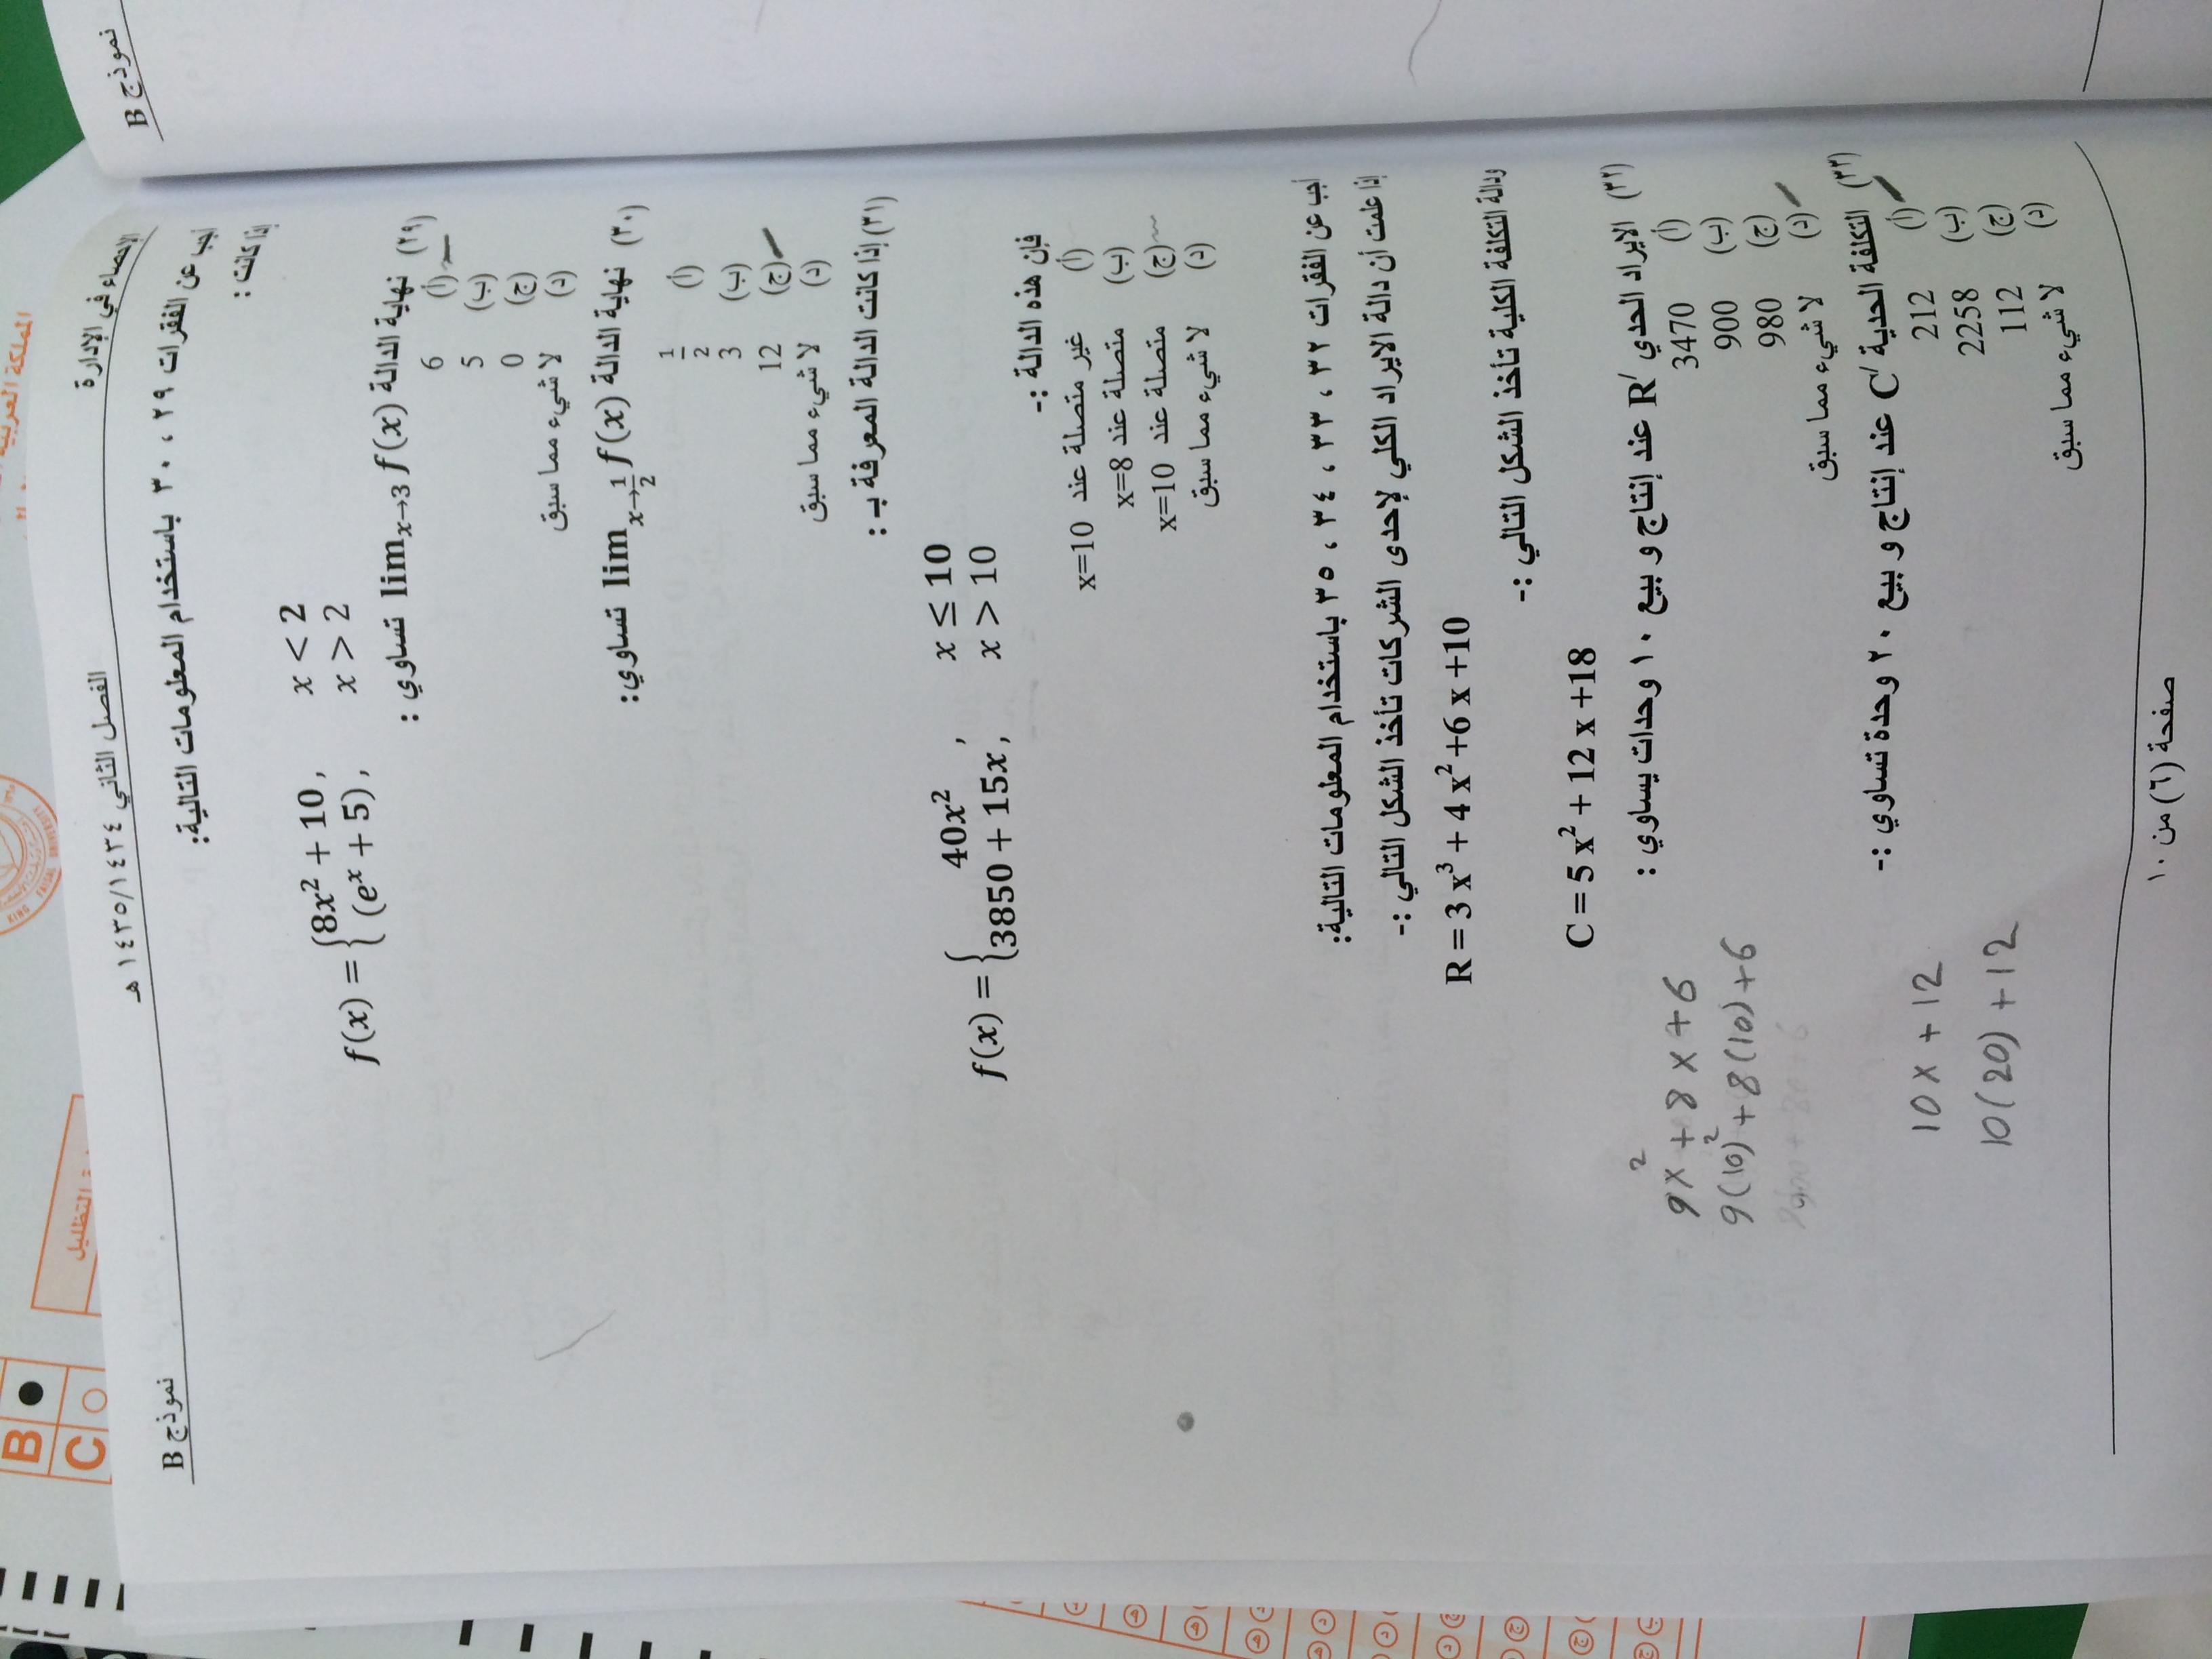 المملكة العربية
التظليل
B
C
نموذج B
الإحصاء في الإدارة
الفصل الثاني ١٤٣٥/١٤٣٤ هـ
نموذج B
أجب عن الفقرات ٢٩ ، ٣٠ باستخدام المعلومات التالية:
إذا كانت :
f(x) = {8x² + 10 , x < 2
(eˣ + 5) , x > 2
(٢٩) نهاية الدالة lim x→3 f(x) تساوي :
(أ) 6
(ب) 5
(ج) 0
(د) لا شيء مما سبق
(٣٠) نهاية الدالة lim x→1/2 f(x) تساوي:
(أ) 1/2
(ب) 3
(ج) 12
(د) لا شيء مما سبق
(٣١) إذا كانت الدالة المعرفة بـ :
f(x) = {40x² , x ≤ 10
3850 + 15x , x > 10
فإن هذه الدالة :-
(أ) غير متصلة عند x=10
(ب) متصلة عند x=8
(ج) متصلة عند x=10
(د) لا شيء مما سبق
أجب عن الفقرات ٣٢ ، ٣٣ ، ٣٤ ، ٣٥ باستخدام المعلومات التالية:
إذا علمت أن دالة الايراد الكلي لإحدى الشركات تأخذ الشكل التالي :-
R = 3 x³ + 4 x² +6 x +10
ودالة التكلفة الكلية تأخذ الشكل التالي :-
C = 5 x² + 12 x +18
(٣٢) الايراد الحدي R′ عند إنتاج و بيع ١٠ وحدات يساوي :
(أ) 3470
(ب) 900
(ج) 980
(د) لا شيء مما سبق
9x² + 8x + 6
9(10)² + 8(10) + 6
(٣٣) التكلفة الحدية C′ عند إنتاج و بيع ٢٠ وحدة تساوي :-
(أ) 212
(ب) 2258
(ج) 112
(د) لا شيء مما سبق
10x + 12
10(20) + 12
صفحة (٦) من ١٠